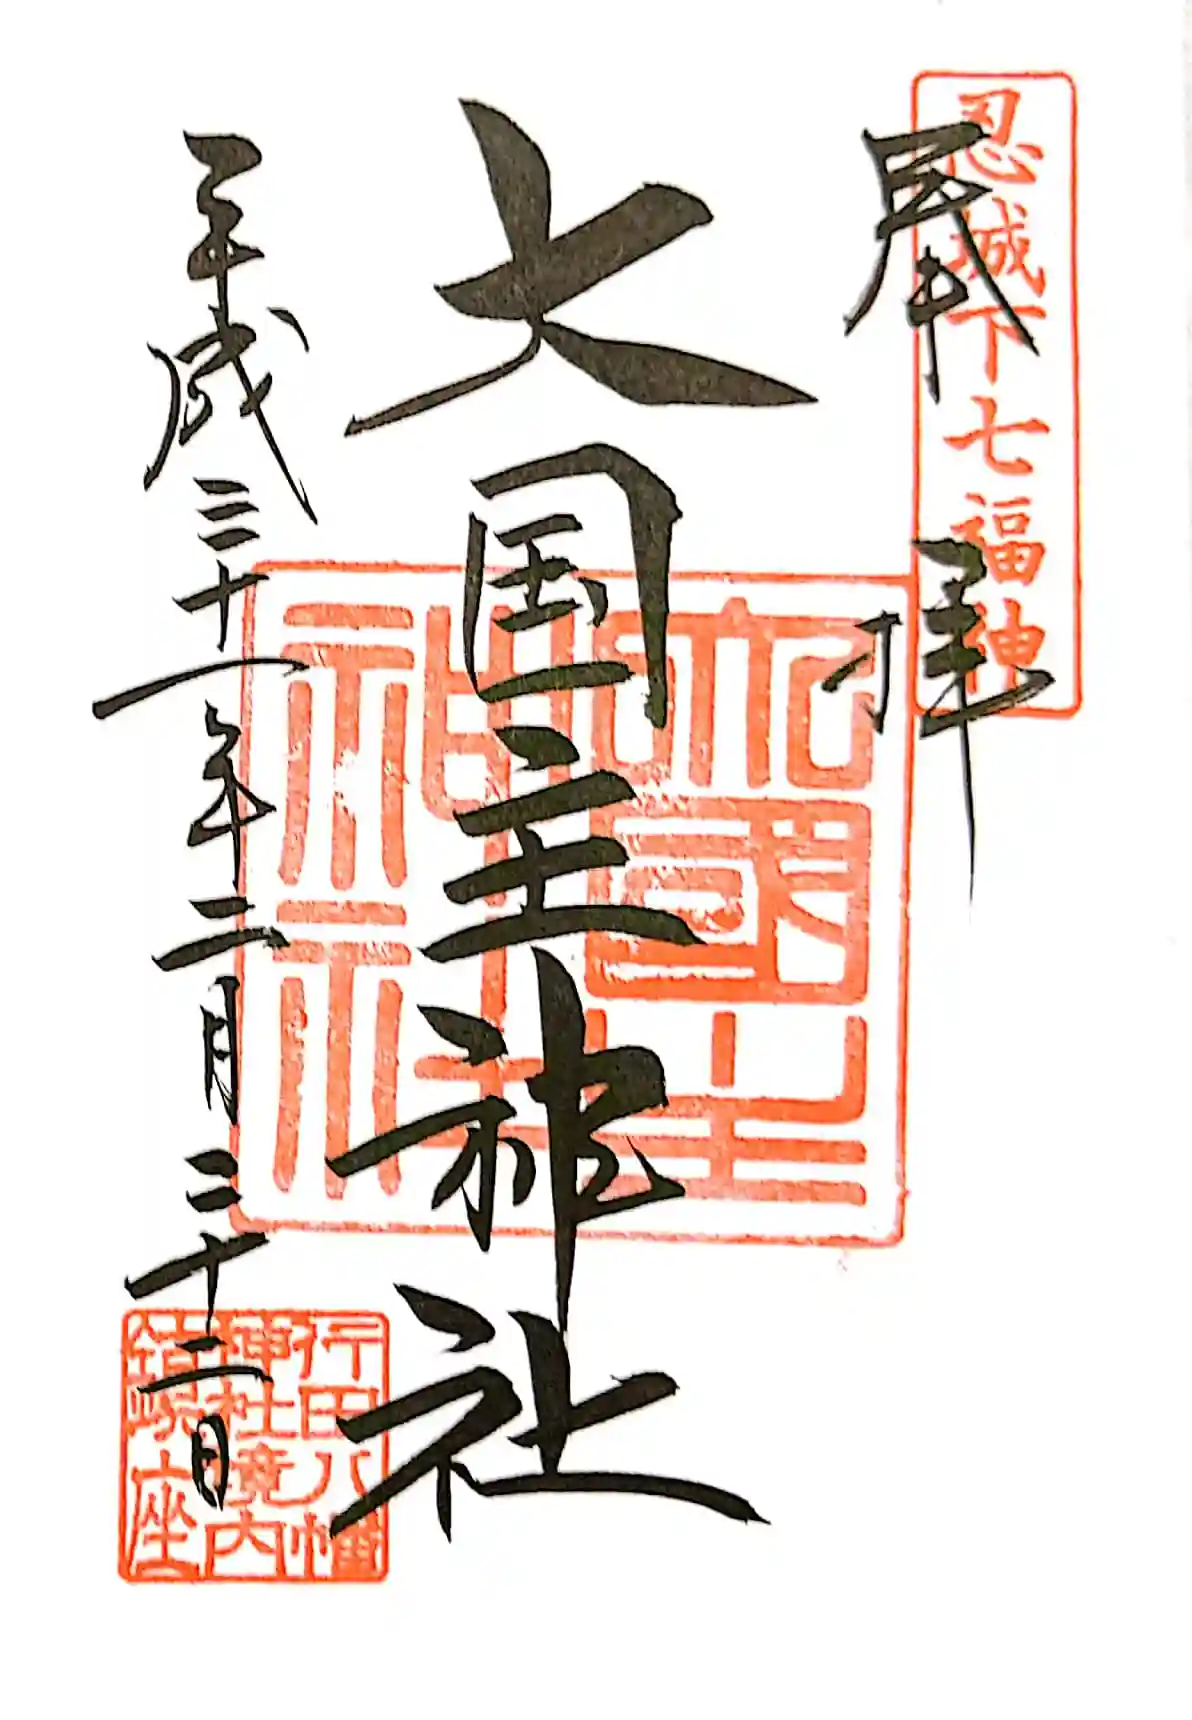 忍城下七福神
奉拝
大国主神社
大國主
神社
平成三十一年二月二十二日
行田八幡
神社境内
鎮座